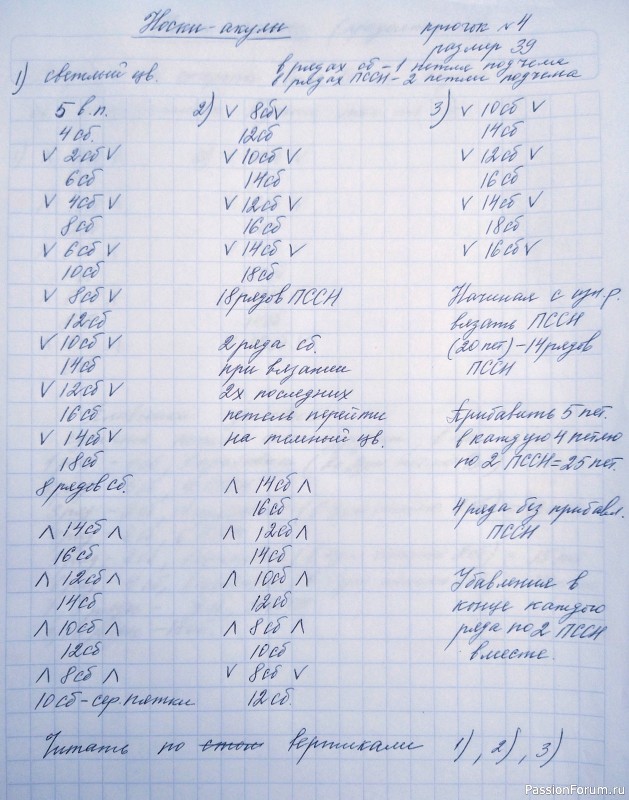 Носки-акулы
крючок №4
размер 39
в рядах сб - 1 петля подъема
в рядах ПССН - 2 петли подъема
1) светлый цв.
5 в.п.
4 сб.
V 2 сб V
6 сб
V 4 сб V
8 сб
V 6 сб V
10 сб
V 8 сб V
12 сб
V 10 сб V
14 сб
V 12 сб V
16 сб
V 14 сб V
18 сб
8 рядов сб.
Λ 14 сб Λ
16 сб
Λ 12 сб Λ
14 сб
Λ 10 сб Λ
12 сб
Λ 8 сб Λ
10 сб - сер. пятки
2) V 8 сб V
12 сб
V 10 сб V
14 сб
V 12 сб V
16 сб
V 14 сб V
18 сб
18 рядов ПССН
2 ряда сб.
при вязании
2х последних
петель перейти
на темный цв.
Λ 14 сб Λ
16 сб
Λ 12 сб Λ
14 сб
Λ 10 сб Λ
12 сб
Λ 8 сб Λ
10 сб
V 8 сб V
12 сб.
3) V 10 сб V
14 сб
V 12 сб V
16 сб
V 14 сб V
18 сб
V 16 сб V
Начиная с изн. р.
вязать ПССН
(20 пет) - 14 рядов
ПССН
Прибавить 5 пет.
в каждую 4 петлю
по 2 ПССН = 25 пет.
4 ряда без прибавл.
ПССН
Убавления в
конце каждого
ряда по 2 ПССН
вместе.
Читать по вертикали 1), 2), 3)
PassionForum.ru